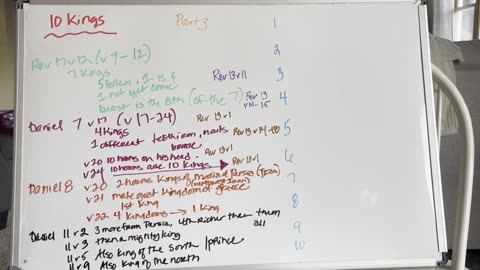 10 Kings
Part 3
Rev 17 v 12 (v 9-12)
7 Kings
5 fallen, 1 is &
1 not yet come
beast is the 8th (of the 7)
Rev 13 v 11
Rev 13
v 14-15
Daniel 7 v 17 (v 17-24)
Rev 13 v 1
4 Kings
1 different teeth iron, nails
bronze
Rev 13 v 14-18
v 20 10 horns on his head
Rev 13 v 1
v 24 10 horns are 10 Kings
Rev 13 v 1
Daniel 8 v 20 2 horns Kings of Media & Persia (Iran)
v 21 male goat Kingdom of Greece
1st King
v 22 4 Kingdoms → 1 King
Daniel 11 v 2 3 more from Persia, 4th Richer then them
all
11 v 3 then a mighty King
11 v 5 Also King of the South / prince
11 v 9 Also King of the north
1
2
3
4
5
6
7
8
9
10